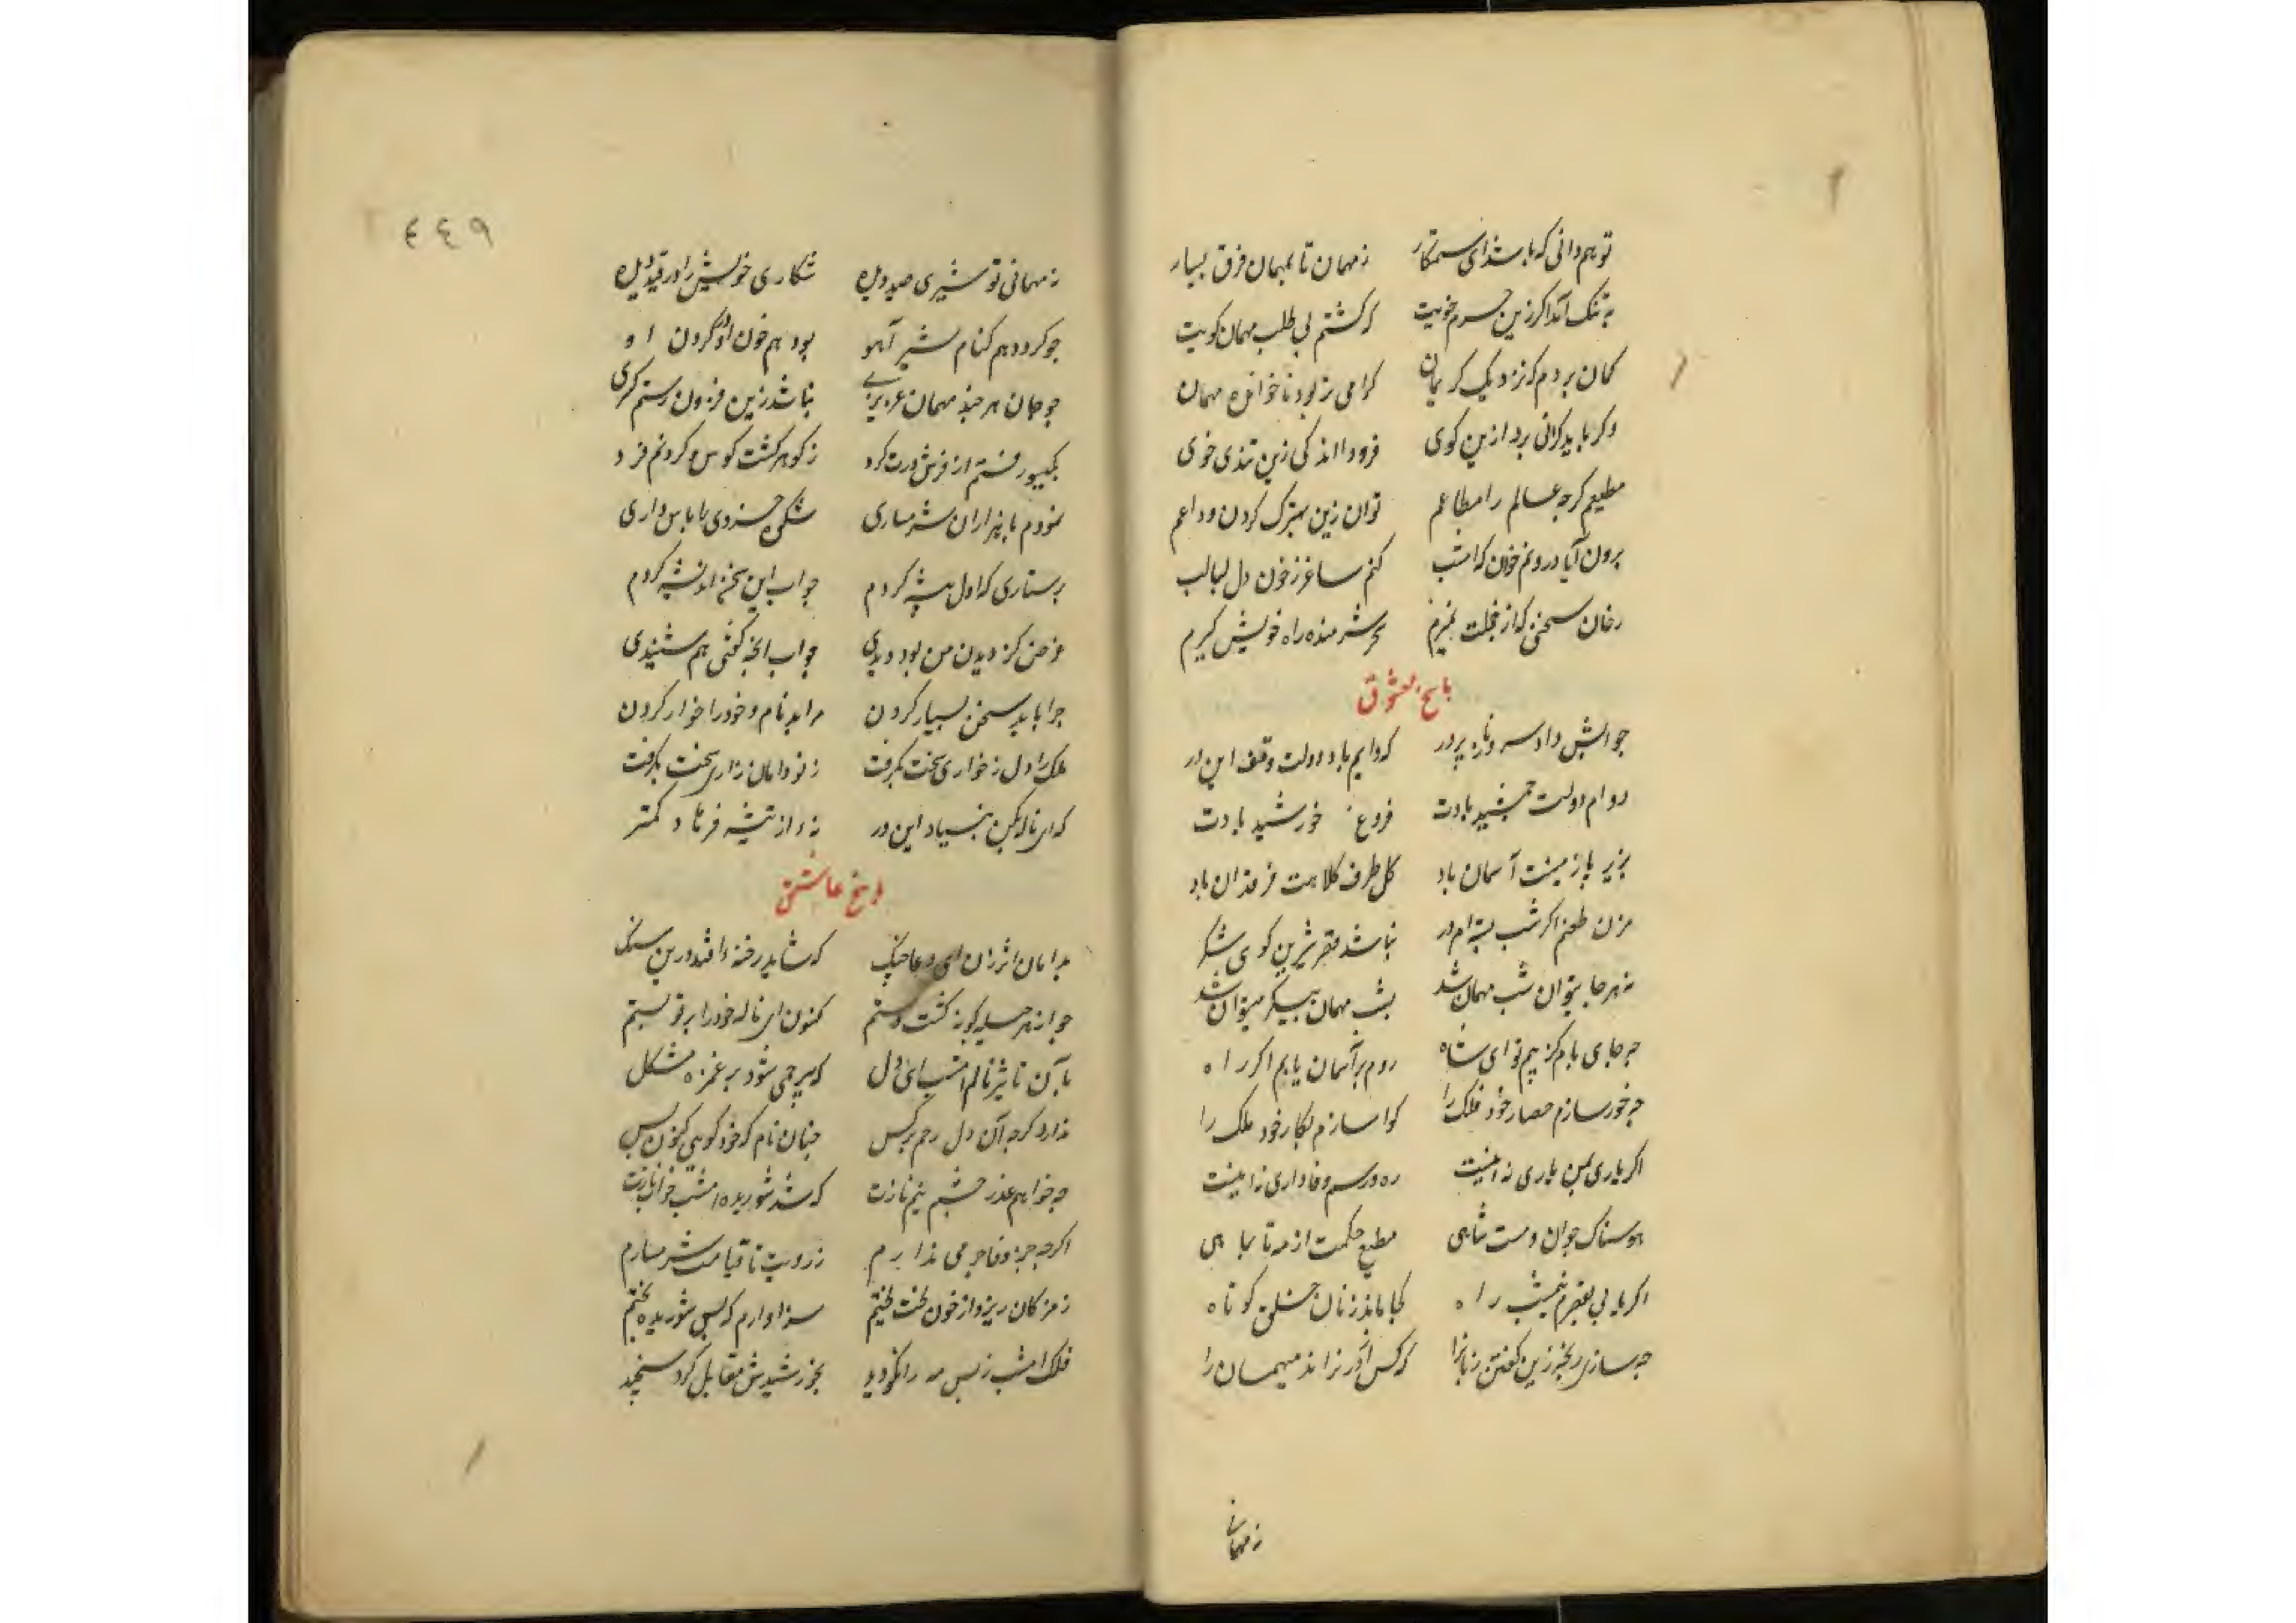 تو هم دانی که باشد ای ستمکار زمهمان تا بمهمان فرق بسیار
به تنک آمد اکر زین جرم خویت که کشتم بی طلب مهمان کویت
کمان بردم که نزدیک کریمان کرامی تر بود ناخوانده مهمان
وکر باید کرانی برد ازین کوی فرود اندکی زین تندی خوی
مطیعم کرچه عالم را مطاعم توان زین بهترک کردن وداعم
برون آ یا درونم خوان که امشب کنم ساغر زخون دل لبالب
سخن که از خجلت نمیرم سر شرمنده راه خویش کیرم
پاسخ معشوق
جوابش داد سرو نازپرور که دایم باد دولت وقف این در
دوام دولت جمشید بادت فروغ خورشید بادت
بزیر پا زمینت آسمان باد کل طرف کلاهت فرقدان باد
مزن طعنم اکر شب بسته ام در نباشد مقرشیرین کوی شکر
نه هرجا میتوان شب مهمان شد بشب مهمان بیکر میتوان شد
چه جای بام کز بیم تو ای شاه روم بر آسمان یابم اکر راه
چه خور سازم حصار خود فلک را کوا سازم بکار خود ملک را
اکر یاری بمن یاری نه اینست ره و رسم وفاداری نه اینست
هوسناک جوان و مست شاهی مطیع حکمت از مه تا بماهی
اکر یابی بقصرم نیمشب راه کجا ماند زبان خلق کوتاه
چه سازی رنجه زین کفتن زبانرا که کس از در نراند میهمان را
زمهمانی
٤٤٩
زمهمانی تو شیری صید دیده شکاری خویش را در قید دیده
چو کردد هم کنام شیر آهو بود هم خون او در کردن او
چو جان هرچند مهمان عزیزی نباشد زین فزون رستم کری
بکیسو رفتم از فرش درت کرد زکوهر کشت کوس و کردنم فرد
نمودم با هزاران شرمساری شکوه خسروی را پاس داری
پرستاری که اول پیشه کردم جواب این سخن اندیشه کردم
غرض کز دیدن من بود دیدی جواب آنچه کفتی هم شنیدی
چرا باید سخن بسیار کردن مرا بدنام و خود را خوار کردن
ملک را دل زخواری سخت بکرفت زنو دامان زاری سخت بکرفت
که ای ناله بکن بنیاد این در نه از تیشه فرهاد کمتر
پاسخ عاشق
بدامان اثر زن ای دعا چنک که شاید رخنه افتد درین سنک
چو از هر حیله کوته کشت دستم کنون ای ناله خود را بر تو بستم
بآن تاثیر نالم امشب ای دل که بیرحمی شود بر غمزه مشکل
ندارد کرچه آن دل رحم بر کس چنان نالم که خود کوی کنون بس
چه خواهم عذر چشم نیم نازت که شد شوریده امشب خواب نازت
اکرچه جز وفا جرمی ندارم زرویت تا قیامت شرمسارم
زمژکان ریزد از خون لخت لختم سزاوارم که بس شوریده بختم
فلک امشب زبس مه را نکو دید بخورشیدش مقابل کرد سنجید